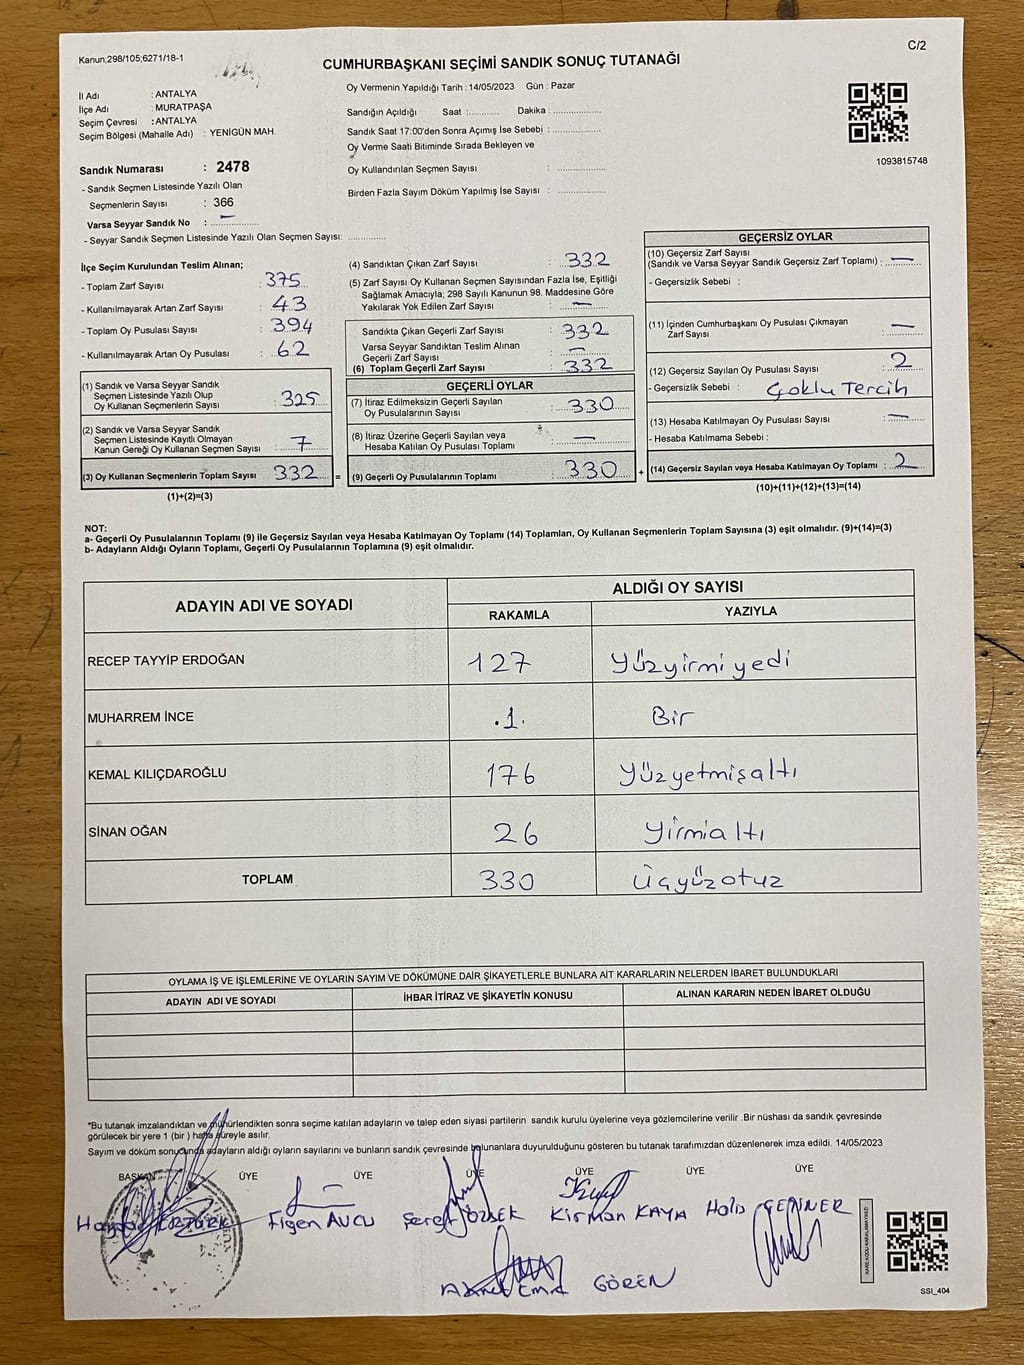 Kanun;298/105;6271/18-1
C/2
CUMHURBAŞKANI SEÇİMİ SANDIK SONUÇ TUTANAĞI
İl Adı : ANTALYA
İlçe Adı : MURATPAŞA
Seçim Çevresi : ANTALYA
Seçim Bölgesi (Mahalle Adı) : YENİGÜN MAH.
Sandık Numarası : 2478
- Sandık Seçmen Listesinde Yazılı Olan
Seçmenlerin Sayısı : 366
Varsa Seyyar Sandık No : —
- Seyyar Sandık Seçmen Listesinde Yazılı Olan Seçmen Sayısı: ............
Oy Vermenin Yapıldığı Tarih : 14/05/2023 Gün : Pazar
Sandığın Açıldığı Saat :........... Dakika : ................
Sandık Saat 17:00'den Sonra Açımış İse Sebebi : ................
Oy Verme Saati Bitiminde Sırada Bekleyen ve
Oy Kullandırılan Seçmen Sayısı : ................
Birden Fazla Sayım Döküm Yapılmış İse Sayısı : ................
1093815748
İlçe Seçim Kurulundan Teslim Alınan;
- Toplam Zarf Sayısı : 375
- Kullanılmayarak Artan Zarf Sayısı : 43
- Toplam Oy Pusulası Sayısı : 394
- Kullanılmayarak Artan Oy Pusulası : 62
(1) Sandık ve Varsa Seyyar Sandık
Seçmen Listesinde Yazılı Olup
Oy Kullanan Seçmenlerin Sayısı : 325
(2) Sandık ve Varsa Seyyar Sandık
Seçmen Listesinde Kayıtlı Olmayan
Kanun Gereği Oy Kullanan Seçmen Sayısı : 7
(3) Oy Kullanan Seçmenlerin Toplam Sayısı : 332 =
(1)+(2)=(3)
(4) Sandıktan Çıkan Zarf Sayısı : 332
(5) Zarf Sayısı Oy Kullanan Seçmen Sayısından Fazla İse, Eşitliği
Sağlamak Amacıyla; 298 Sayılı Kanunun 98. Maddesine Göre
Yakılarak Yok Edilen Zarf Sayısı : —
Sandıkta Çıkan Geçerli Zarf Sayısı : 332
Varsa Seyyar Sandıktan Teslim Alınan
Geçerli Zarf Sayısı : —
(6) Toplam Geçerli Zarf Sayısı : 332
GEÇERLİ OYLAR
(7) İtiraz Edilmeksizin Geçerli Sayılan
Oy Pusulalarının Sayısı : 330
(8) İtiraz Üzerine Geçerli Sayılan veya
Hesaba Katılan Oy Pusulası Toplamı : —
(9) Geçerli Oy Pusulalarının Toplamı : 330 +
GEÇERSİZ OYLAR
(10) Geçersiz Zarf Sayısı
(Sandık ve Varsa Seyyar Sandık Geçersiz Zarf Toplamı) : —
- Geçersizlik Sebebi :
(11) İçinden Cumhurbaşkanı Oy Pusulası Çıkmayan
Zarf Sayısı : —
(12) Geçersiz Sayılan Oy Pusulası Sayısı : 2
- Geçersizlik Sebebi : Çoklu Tercih
(13) Hesaba Katılmayan Oy Pusulası Sayısı : —
- Hesaba Katılmama Sebebi :
(14) Geçersiz Sayılan veya Hesaba Katılmayan Oy Toplamı : 2
(10)+(11)+(12)+(13)=(14)
NOT:
a- Geçerli Oy Pusulalarının Toplamı (9) ile Geçersiz Sayılan veya Hesaba Katılmayan Oy Toplamı (14) Toplamları, Oy Kullanan Seçmenlerin Toplam Sayısına (3) eşit olmalıdır. (9)+(14)=(3)
b- Adayların Aldığı Oyların Toplamı, Geçerli Oy Pusulalarının Toplamına (9) eşit olmalıdır.
ADAYIN ADI VE SOYADI
ALDIĞI OY SAYISI
RAKAMLA YAZIYLA
RECEP TAYYİP ERDOĞAN 127 Yüzyirmiyedi
MUHARREM İNCE .1. Bir
KEMAL KILIÇDAROĞLU 176 Yüzyetmişaltı
SİNAN OĞAN 26 Yirmialtı
TOPLAM 330 Üçyüzotuz
OYLAMA İŞ VE İŞLEMLERİNE VE OYLARIN SAYIM VE DÖKÜMÜNE DAİR ŞİKAYETLERLE BUNLARA AİT KARARLARIN NELERDEN İBARET BULUNDUKLARI
ADAYIN ADI VE SOYADI İHBAR İTİRAZ VE ŞİKAYETİN KONUSU ALINAN KARARIN NEDEN İBARET OLDUĞU
*Bu tutanak imzalandıktan ve mühürlendikten sonra seçime katılan adayların ve talep eden siyasi partilerin sandık kurulu üyelerine veya gözlemcilerine verilir .Bir nüshası da sandık çevresinde
görülecek bir yere 1 (bir ) hafta süreyle asılır.
Sayım ve döküm sonucunda adayların aldığı oyların sayılarını ve bunların sandık çevresinde bulunanlara duyurulduğunu gösteren bu tutanak tarafımızdan düzenlenerek imza edildi. 14/05/2023
BAŞKAN ÜYE ÜYE ÜYE ÜYE ÜYE ÜYE
ÖZTÜRK Figen AVCU Şeref ÖZBEK Kirman KAYA
GÖREN
SSI_404